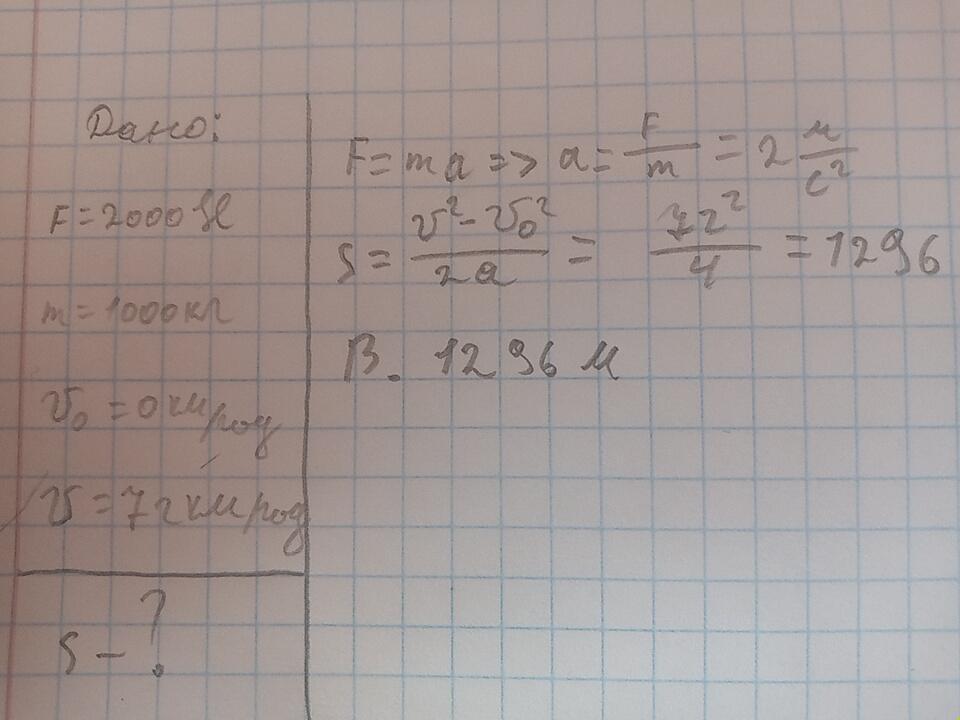 Дано:
F = 2000 Н
m = 1000 кг
v₀ = 0 км/год
v = 72 км/год
s - ?
F = ma => a = F/m = 2 м/с²
s = (v² - v₀²)/2a = 72²/4 = 1296
В. 1296 м